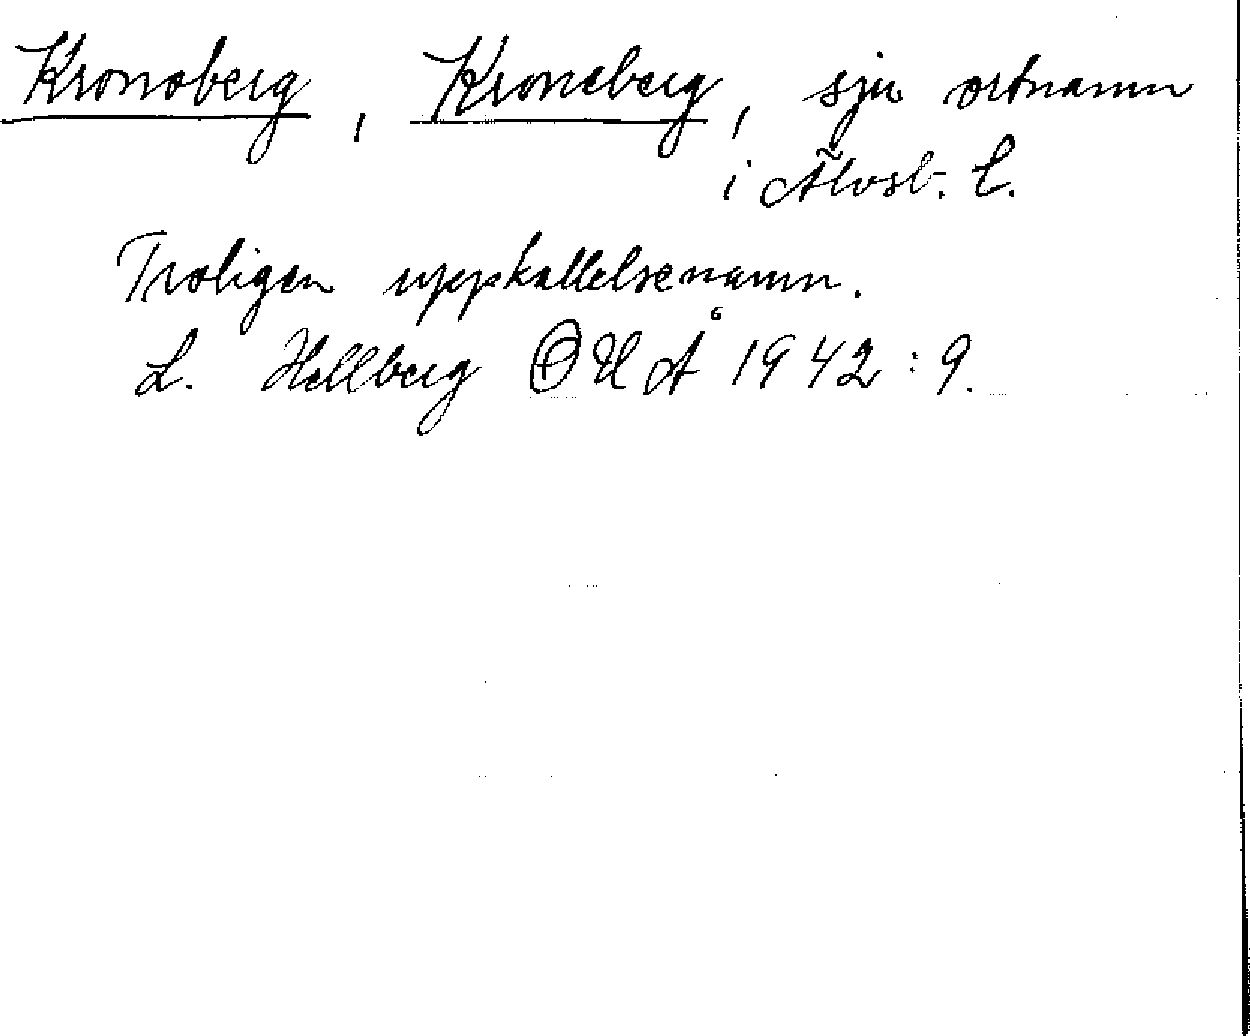 Kronoberg, Kroneberg, sju ortnamn
i Älvsb. l.
Troligen uppkallelsenamn.
L. Hellberg OUÅ 1942:9.